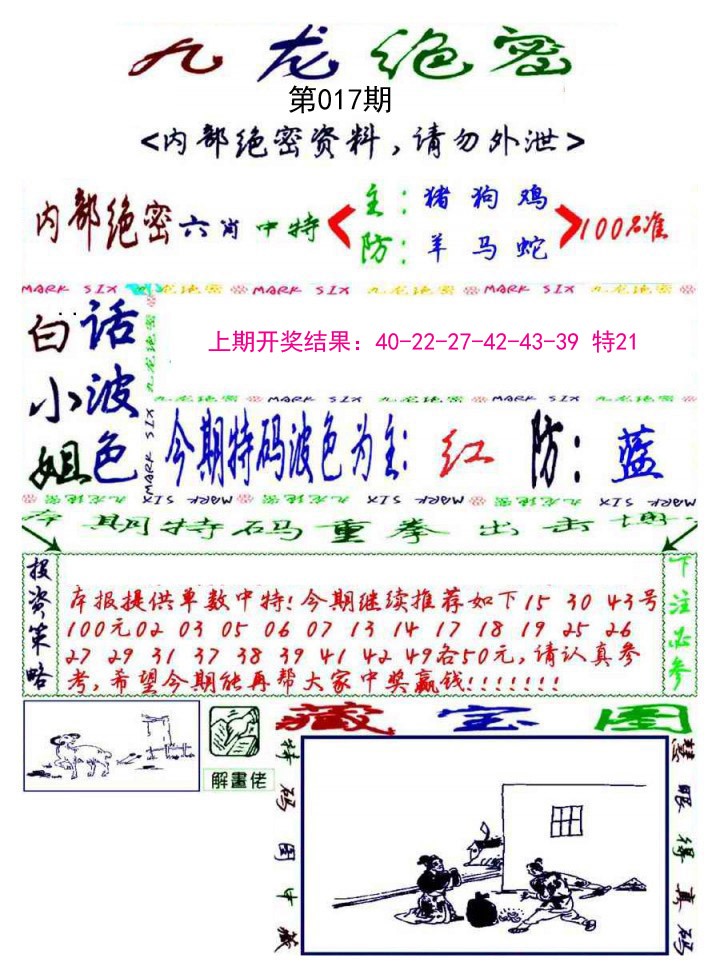 九龙绝密
第017期
<内部绝密资料,请勿外泄>
内部绝密六肖中特
主:猪 狗 鸡
防:羊 马 蛇
100%准
MARK SIX 九龙绝密 MARK SIX 九龙绝密 MARK SIX 九龙绝密
白话
小波
姐色
上期开奖结果：40-22-27-42-43-39 特21
九龙绝密 MARK SIX 九龙绝密 MARK SIX 九龙绝密
今期特码波色为主:红 防:蓝
九龙绝密 MARK SIX 九龙绝密 MARK SIX 九龙绝密 MARK SIX
本期特码重拳出击博
投资策略
本报提供单数中特!今期继续推荐如下15 30 43号
100元02 03 05 06 07 13 14 17 18 19 25 26
27 29 31 37 38 39 41 42 49各50元,请认真参
考,希望今期能再帮大家中奖赢钱!!!!!!!
下注必参
解畫佬
藏宝图
特码图中藏
慧眼得真码